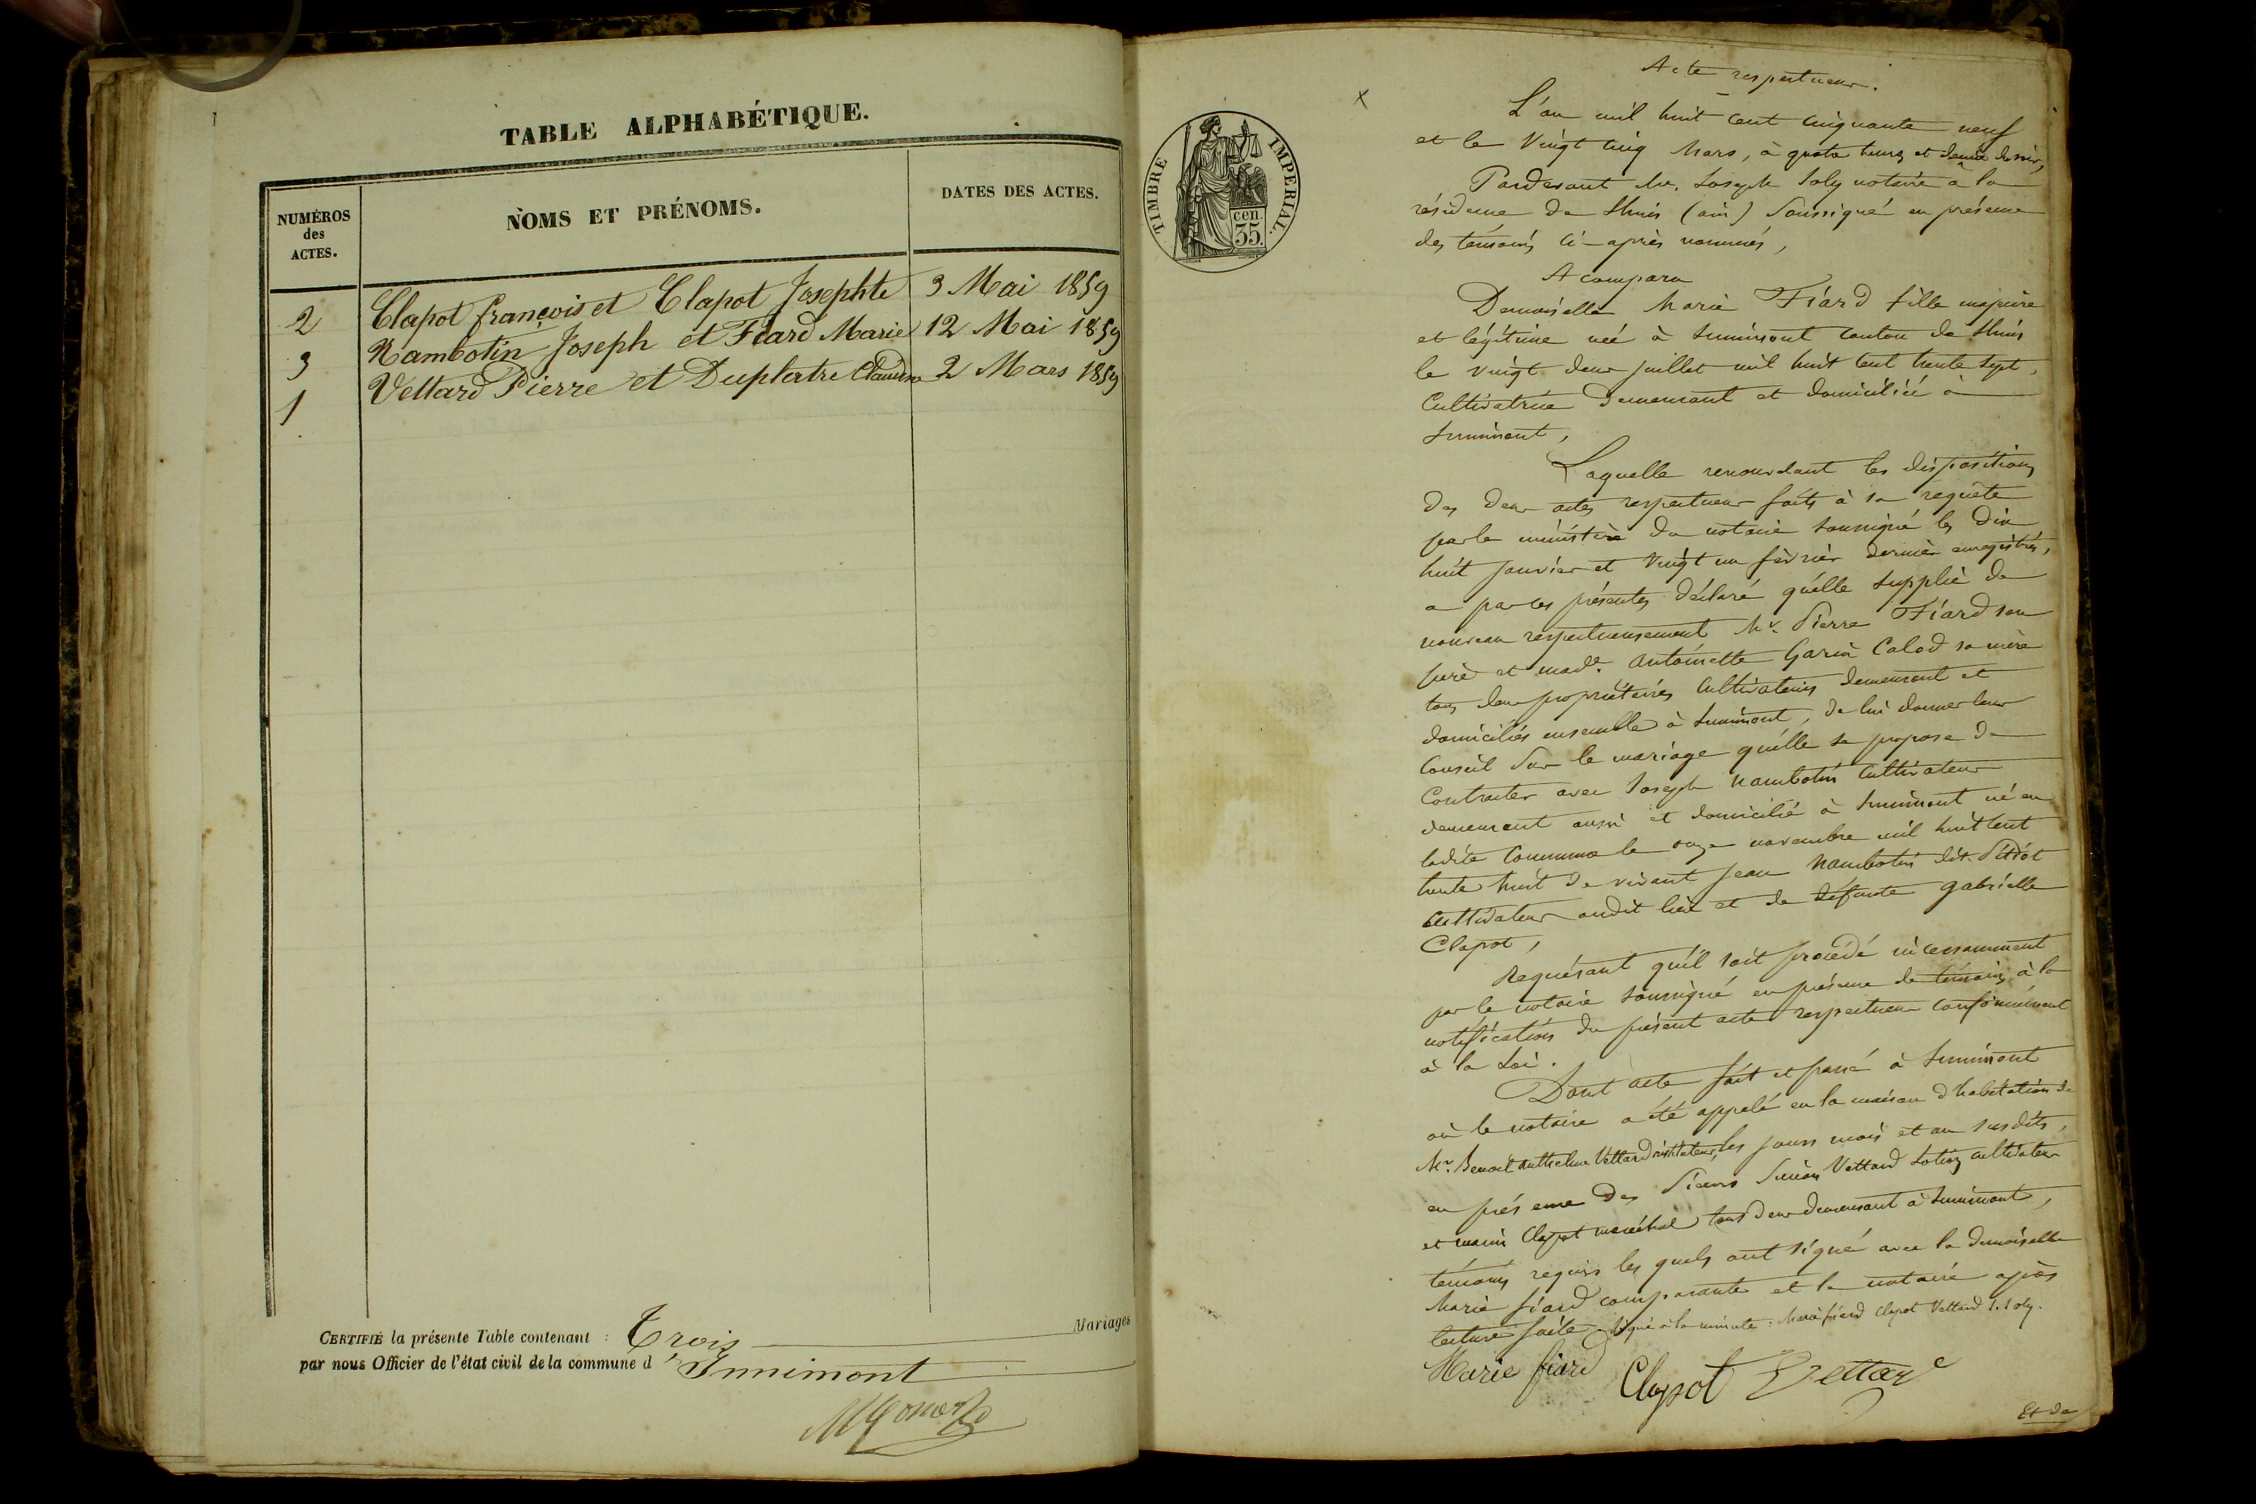 TABLE ALPHABÉTIQUE.
NUMÉROS des ACTES.
NOMS ET PRÉNOMS.
DATES DES ACTES.
2 Clapot françois et Clapot Josephte 3 Mai 1859
3 Nambotin Joseph et Fiard Marie 12 Mai 1859
1 Vettard Pierre et Duplatre Claudine 2 Mars 1859
CERTIFIÉ la présente Table contenant : Trois Mariages
par nous Officier de l'état civil de la commune d'Innimont
TIMBRE IMPERIAL.
cen.
35.
Acte respectueux.
L'an mil huit cent cinquante neuf
et le vingt cinq Mars, à quatre heures et demie du soir,
Pardevant Me. Joseph Joly notaire à la
résidence de Lhuis (ain) Soussigné en présence
des témoins ci-après nommés,
A comparu
Demoiselle Marie Fiard fille majeure
et légitime née à Innimont canton de Lhuis
le vingt deux juillet mil huit cent trente sept,
Cultivatrice demeurant et domiciliée à
Innimont,
Laquelle renouvelant les dispositions
des deux actes respectueux faits à sa requête
par le ministère du notaire soussigné les dix
huit janvier et vingt un février dernier enregistrés,
a par ces présentes déclaré qu'elle supplie de
nouveau respectueusement Mr. Pierre Fiard son
père et made. Antoinette Garin Calod sa mère
tous deux propriétaires cultivateurs demeurant et
domiciliés ensemble à Innimont, de lui donner leur
Conseil sur le mariage qu'elle se propose de
Contracter avec Joseph Nambotin Cultivateur
demeurant aussi et domicilié à Innimont né en
ladite Commune le onze novembre mil huit cent
trente huit de vivant Jean Nambotin dit Pitiot
Cultivateur audit lieu et de défunte gabrielle
Clapot,
Requérant qu'il soit procédé incessamment
par le notaire soussigné en présence de témoins à la
notification du présent acte respectueux conformément
à la Loi.
Dont acte fait et passé à Innimont
où le notaire a été appelé en la maison d'habitation de
Mr. Benoit Anthelme Vettard instituteur, les jours mois et an susdits,
en présence des Sieurs Vettard cultivateur
et Clapot maréchal tous deux demeurant à Innimont,
témoins requis les quels ont signé avec la demoiselle
Marie fiard comparante et le notaire après
lecture faite. Signé à la minute : Marie fiard Clapot Vettard J. Joly.
Marie fiard Clapot Vettard
Et de